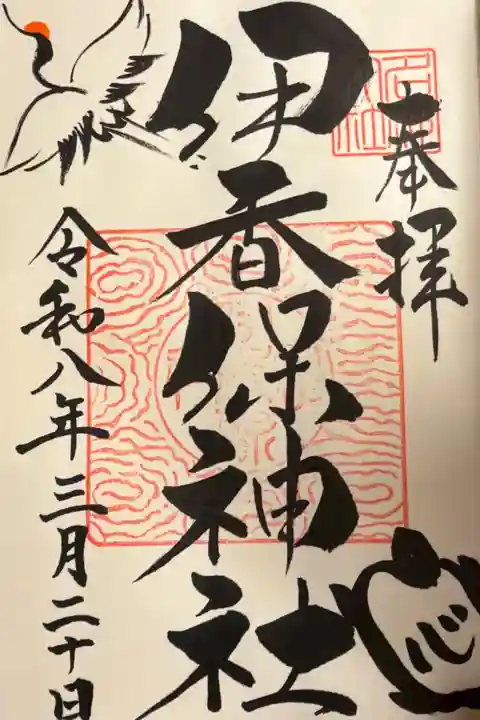 奉拝
伊香保神社
令和八年三月二十日
心